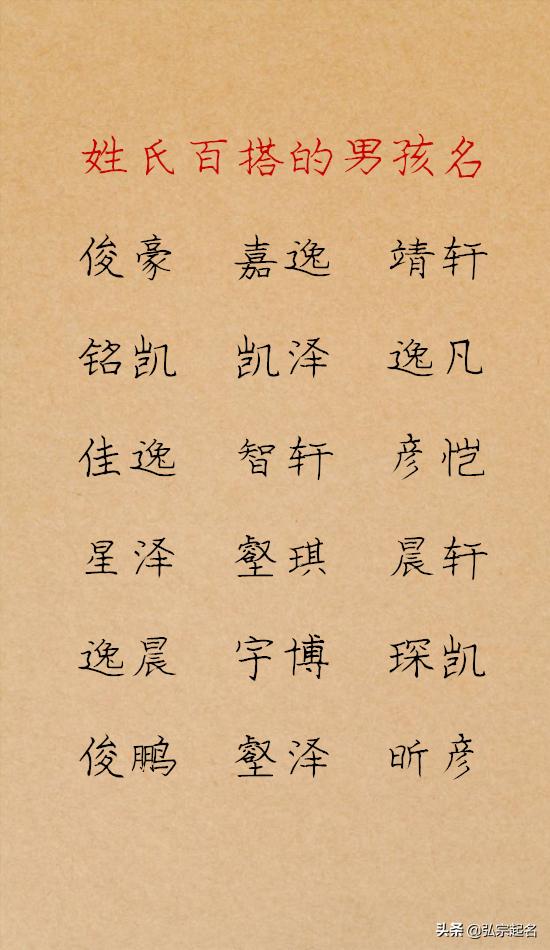 姓氏百搭的男孩名
俊豪 嘉逸 靖轩
铭凯 凯泽 逸凡
佳逸 智轩 彦恺
星泽 壑琪 晨轩
逸晨 宇博 琛凯
俊鹏 壑泽 昕彦
头条 @弘宗起名